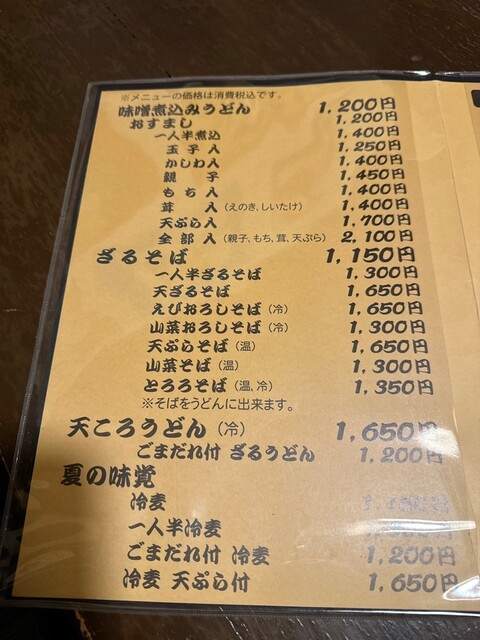 ※メニューの価格は消費税込です。
味噌煮込みうどん 1,200円
おすまし 1,200円
一人半煮込 1,400円
玉子入 1,250円
かしわ入 1,400円
親子 1,450円
もち入 1,400円
茸入(えのき、しいたけ) 1,400円
天ぷら入 1,700円
全部入(親子、もち、茸、天ぷら) 2,100円
ざるそば 1,150円
一人半ざるそば 1,300円
天ざるそば 1,650円
えびおろしそば(冷) 1,650円
山菜おろしそば(冷) 1,300円
天ぷらそば(温) 1,650円
山菜そば(温) 1,300円
とろろそば(温、冷) 1,350円
※そばをうどんに出来ます。
天ころうどん(冷) 1,650円
ごまだれ付 ざるうどん 1,200円
夏の味覚
冷麦
一人半冷麦
ごまだれ付 冷麦 1,200円
冷麦 天ぷら付 1,650円